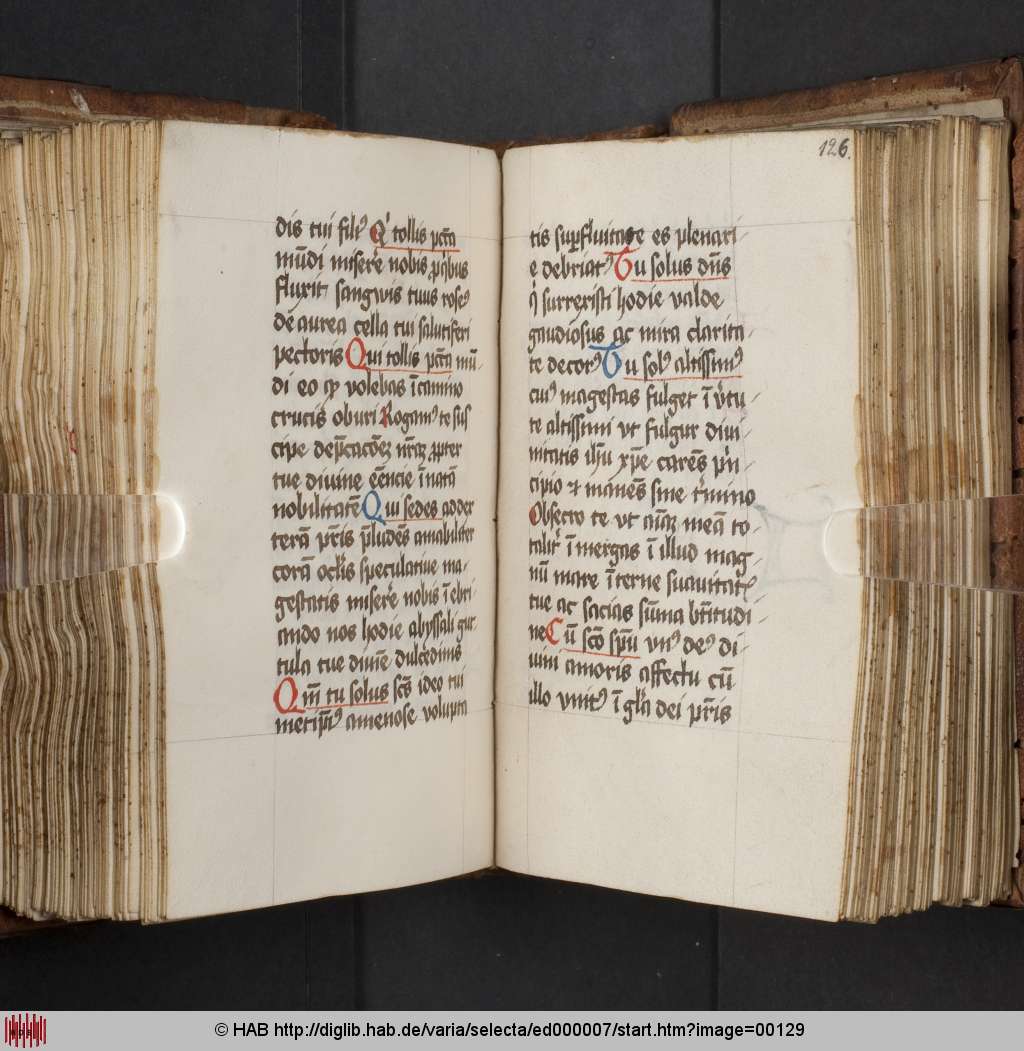 dis tui filiꝰ Qͥ tollis pctā
mūdi miserē nobis ꝓ qͥbus
fluxit sangwis tuus roseꝰ
dē aurea cella tui salutiferi
pectoris Qui tollis pctā mū-
di eo qꝫ volebas ī camino
crucis oburi Rogamꝰ te sus
cipe dep̄cacōeꝫ nr̄aꝫ ꝓpter
tue divine eēncie īnatā
nobilitatē Qui sedes ad dex
terā pr̄is p̄ludēs amabiliter
corā oclīs speculative ma-
gestatis miserē nobis ī ebri-
ando nos hodie abyssali gut
tula tue divīe dulcedinis
Qm̄ tu solus scs̄ ideo tui
metip̄iꝰ amenose volupta
126.
tis suꝑfluitate es plenari-
e debriatꝰ Tu solus dn̄s
qͥ surrexisti hodie valde
gaudiosus ac mira clarita-
te decorꝰ Tu solꝰ altissimꝰ
cuiꝰ magestas fulget ī v̓tu-
te altissimi vt fulgur divi-
nitatis ihū xp̄e carēs p̄n-
cipio et manēs sine t̓mino
Obsecro te vt aīaꝫ meā to-
talit̓ ī mergas ī illud mag-
nū mare ī terne suavitatꝭ
tue ac sacias sūma bt̄itudi-
ne Cū scō sp̄u vnꝰ deꝰ di-
vini amoris affectu cū
illo vnitꝰ ī gl̄a dei pr̄is
© HAB http://diglib.hab.de/varia/selecta/ed000007/start.htm?image=00129